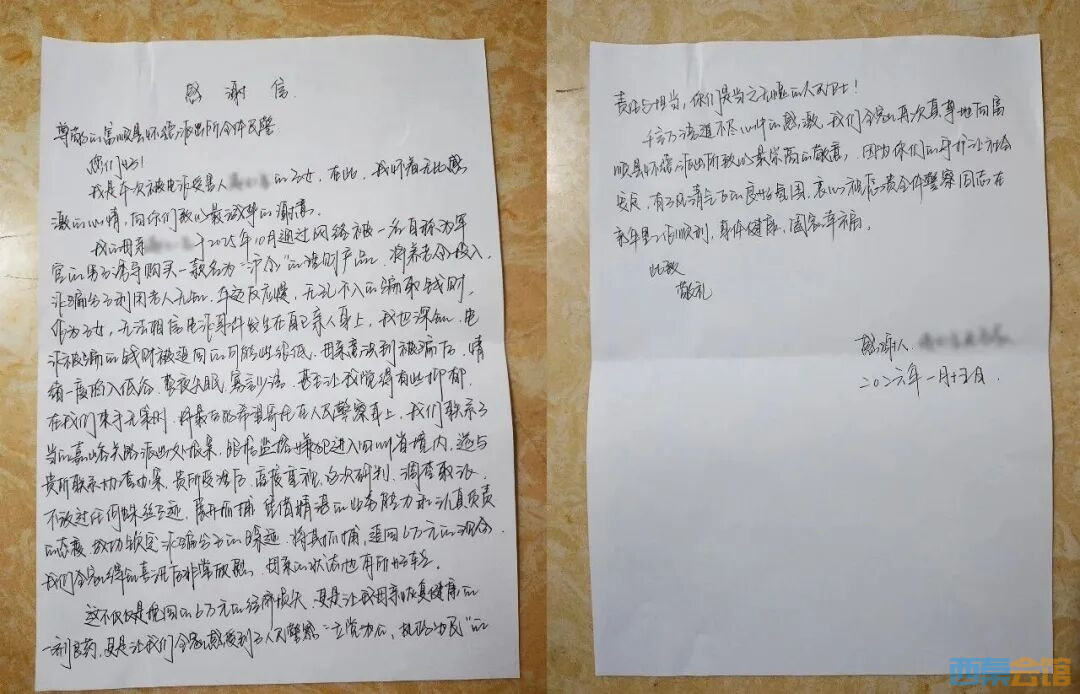 感谢信
尊敬的富顺县怀德派出所全体民警
您们好！
我是本次被电诈受害人 的子女，在此，我怀着无比感
激的心情，向你们致以最诚挚的谢意。
我的母亲 于2025年10月通过网络被一名自称为军
官的男子诱导购买一款名为“沪金”的理财产品，将养老金投入，
诈骗分子利用老人无知，年迈反应慢，无孔不入的骗取钱财，
作为子女，无法相信电诈事件发生在自己亲人身上，我也深知，电
诈被骗的钱财被追回的可能性很低，母亲意识到被骗后，情
绪一度陷入低谷，整夜失眠，寡言少语，甚至让我觉得有些抑郁，
在我们束手无策时，将最后的希望寄托在人民警察身上，我们联系了
当地嘉峪关 派出处报案，跟控监控嫌犯进入四川省境内，遂与
贵所联系协查办案，贵所受理后，高度重视，多次研判，调查取证，
不放过任何蛛丝马迹，展开抓捕，凭借精湛的业务能力和认真负责
的态度，成功锁定诈骗分子的踪迹，将其抓捕，追回6万元的现金，
我们全家得知喜讯后非常欣慰，母亲的状态也有所好转。
这不仅仅是挽回的6万元的经济损失，更是让我母亲恢复健康的
一剂良药，更是让我们全家感受到了人民警察“立党为公、执政为民”的
责任与担当，你们是当之无愧的人民卫士！
千言万语道不尽心中的感激，我们全家再次真挚地向富
顺县怀德派出所致以最崇高的敬意，因为你们的守护让社会
安定，有了风清气正的良好氛围，衷心祝愿贵全体警察同志在
来年里工作顺利，身体健康，阖家幸福。
此致
敬礼
感谢人
二〇二六年一月十五日.
西秦会馆